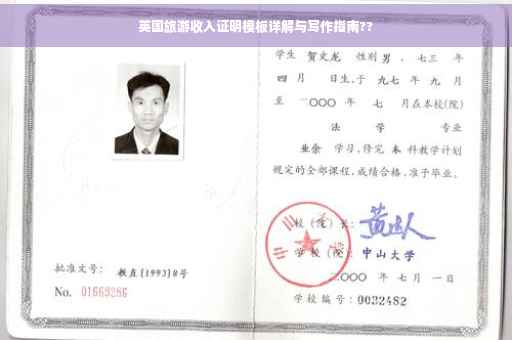 英国旅游收入证明模板详解与写作指南??
学生 贺文龙 性别 男 、七三 年
四 月 日生,于 九七 年 九 月
至 二〇〇〇 年 七 月在本校(院)
法 学 专业
业余 学习,修完 本 科教学计划
规定的全部课程,成绩合格,准予毕业。
校(院)长:
学校(院): 中山大学
二〇〇〇 年 七 月 一 日
批准文号: 教直[1993]8号
No. 01669286
学校编号: 0032482